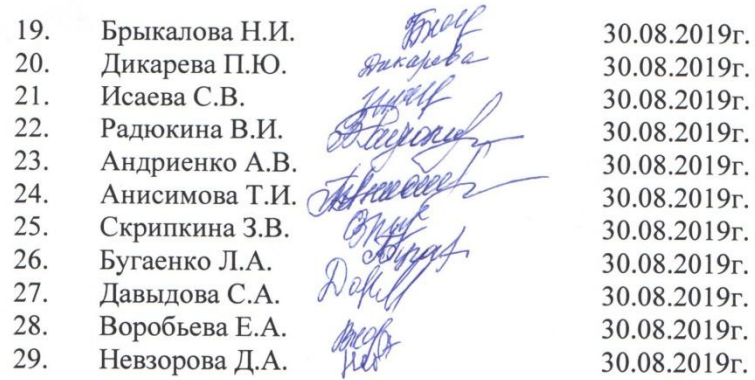 19. Брыкалова Н.И. 30.08.2019г.
20. Дикарева П.Ю. Дикарева 30.08.2019г.
21. Исаева С.В. 30.08.2019г.
22. Радюкина В.И. 30.08.2019г.
23. Андриенко А.В. 30.08.2019г.
24. Анисимова Т.И. 30.08.2019г.
25. Скрипкина З.В. 30.08.2019г.
26. Бугаенко Л.А. 30.08.2019г.
27. Давыдова С.А. 30.08.2019г.
28. Воробьева Е.А. 30.08.2019г.
29. Невзорова Д.А. 30.08.2019г.